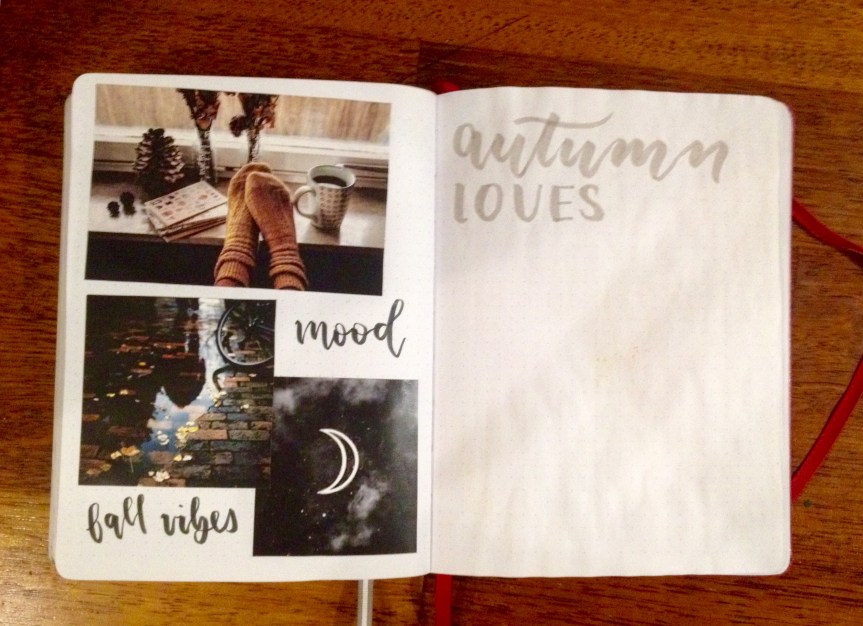 mood
fall vibes
autumn
LOVES